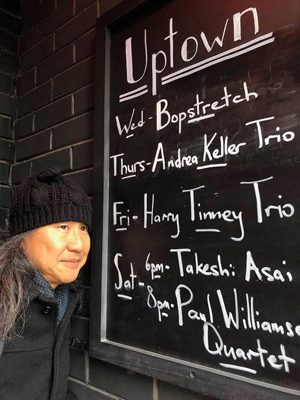 Uptown
Wed - Bopstretch
Thurs - Andrea Keller Trio
Fri - Harry Tinney Trio
Sat 6pm - Takeshi Asai
8pm - Paul Williamso
Quartet